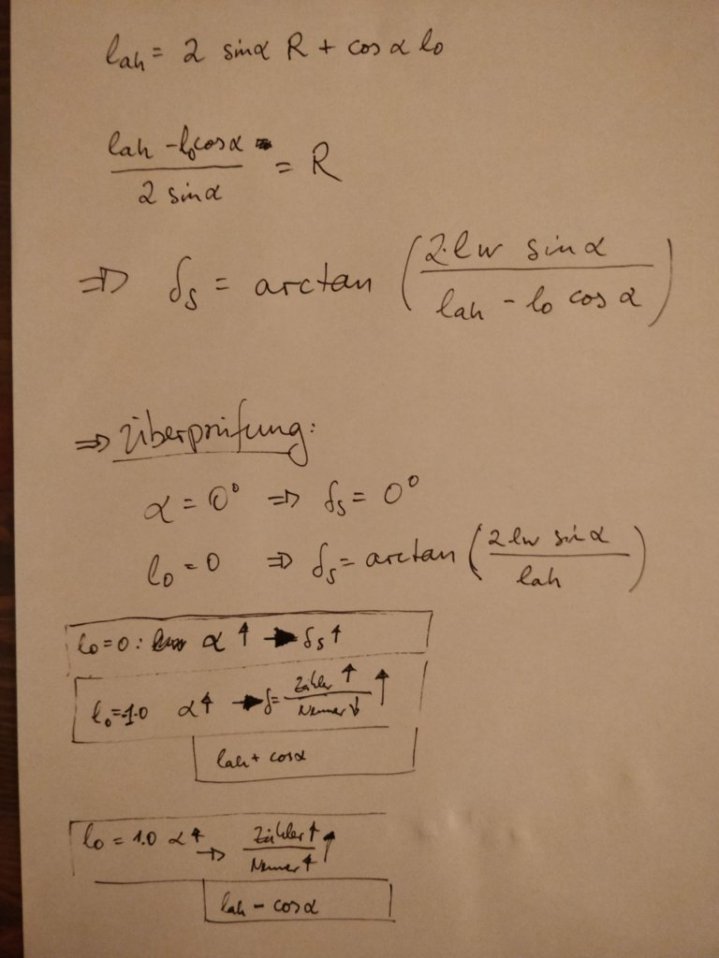 lah = 2 sinα R + cosα l0
(lah - l0cosα) / (2 sinα) = R
⇒ δs = arctan ( (2·lw sinα) / (lah - l0 cosα) )
⇒ Überprüfung:
α = 0° ⇒ δs = 0°
l0 = 0 ⇒ δs = arctan ( (2 lw sinα) / lah )
l0 = 0 : α ↑ → δs ↑
l0 = -1.0 α ↑ → δ = Zähler ↑ / Nenner ↓ ↑
lah + cosα
l0 = 1.0 α ↑ → Zähler ↑ / Nenner ↑ ↑
lah - cosα